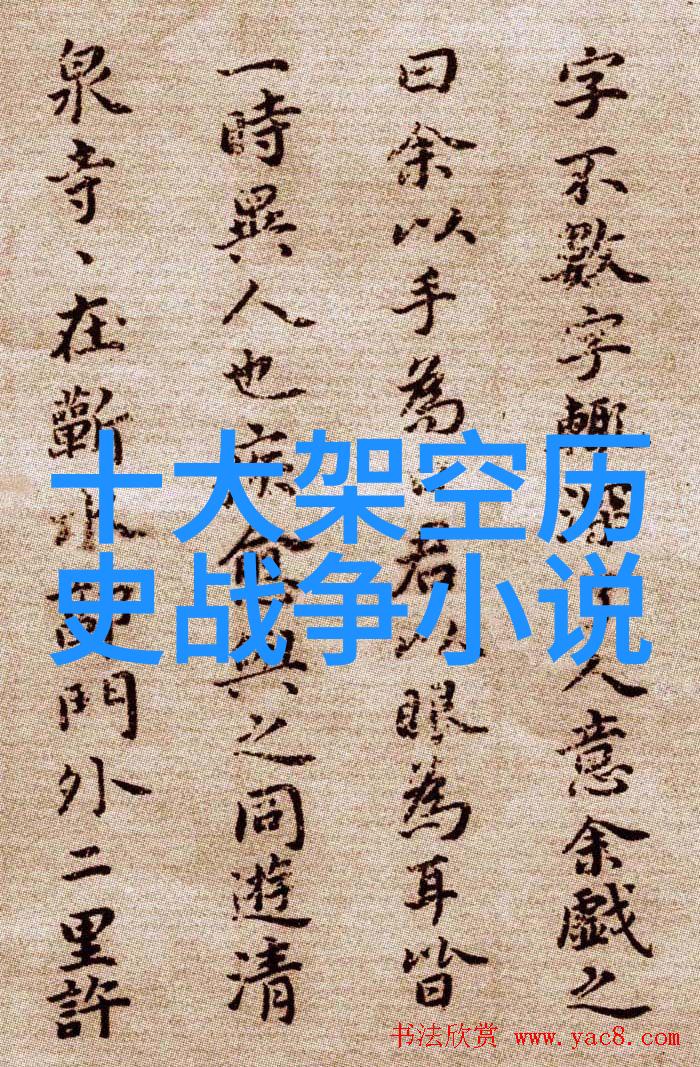 字不數字輒深人意余戲之
曰余以手為君以眼為耳皆
一時異人也疾愈與之同遊清
泉寺、在蘄水郭門外二里許
十大架空历
史战争小说
书法欣赏 www.yac8.com